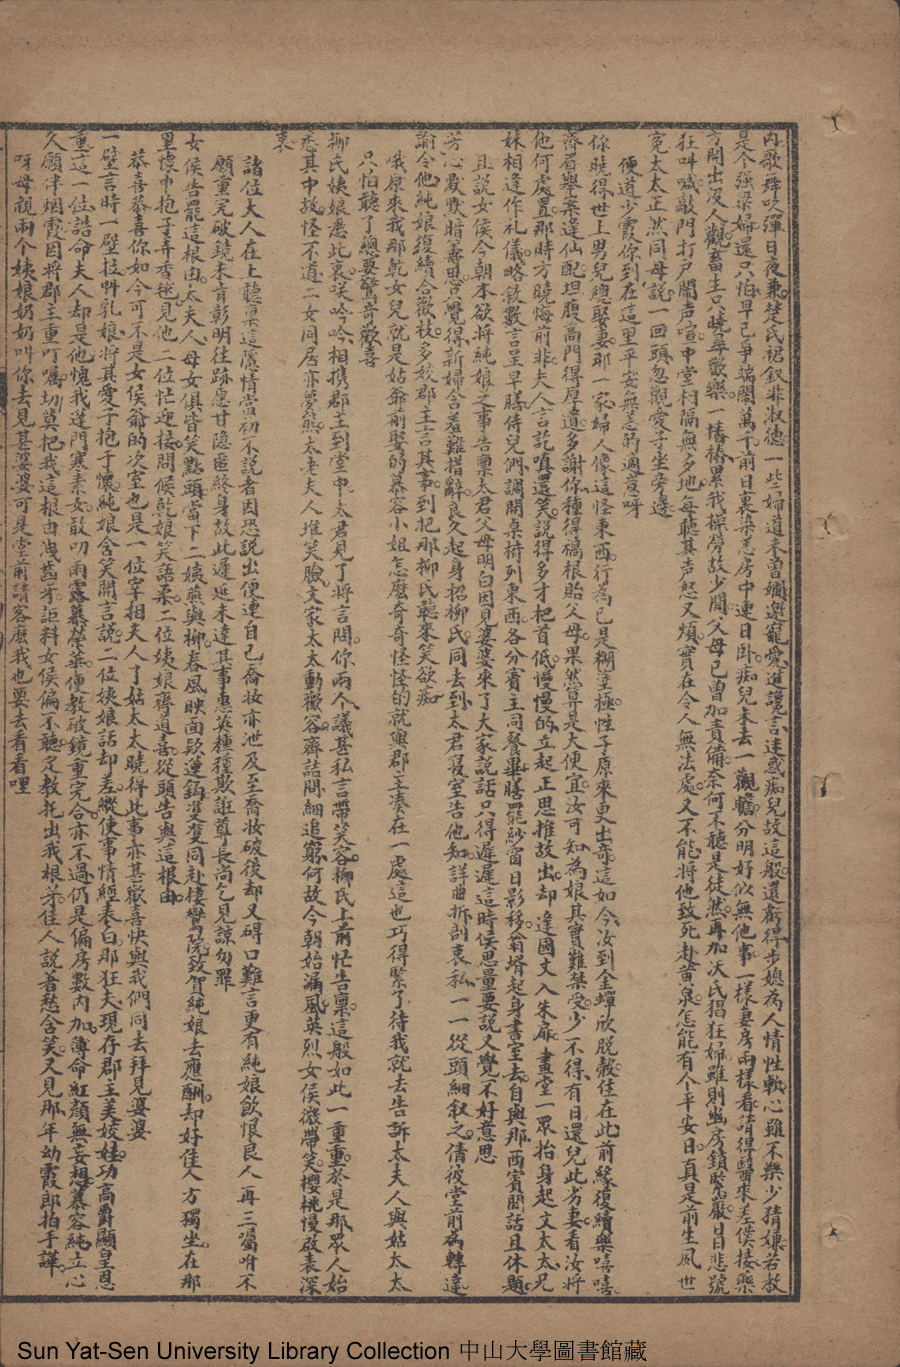 內歌舞吹彈日夜兼楚氏裙釵非淑德一些婦道未曾嫺邀寵愛進讒言迷惑痴兒故這般還虧得步媳為人情性軟心雖不樂少猜嫌若教
是个强梁婦還只怕早已爭端鬧萬千前日裏染恙房中連日卧痴兒未去一觀瞻分明好似無他事一樣妻房兩樣看請得醫來差僕接藥
方開出沒人觀畜生只曉尋歡樂一樁樁累我操勞故少閒父母已曾加責備奈何不聽是徒然再加沃氏猖狂婦雖則幽房鎖緊嚴日日悲號
狂叫喊敲門打戶鬧聲喧中堂相隔無多地每聽其聲怒又煩實在令人無法處又不能將他致死赴黃泉怎能有个平安日真是前生夙世
寃太太正然同母說一回頭忽觀愛子坐旁邊
便道少霞你到在這里平安無恙的適意呀
你曉得世上男兒總娶妻那一家婦人像這怪東西行為已是糊塗極性子原來更出奇這如今汝到金蟬欣脱殼住在此前緣復續樂嘻嘻
齊眉舉案逢仙配坦腹高門得厚遺多謝你種得禍根貽父母果然算是大便宜汝可知為娘其實難禁受少不得有日還兒此劣妻看汝將
他何處置那時方曉悔前非夫人言訖嗔還笑說得多才把首低慢慢的立起正思推故出却逢國丈入朱扉畫堂一眾抬身起文太太兄
妹相逢作礼儀略敘數言呈早膳侍兒們調開桌椅列東西各分賓主同餐畢膳罷紗窗日影移翁壻起身書室去自與那西賓閒話且休題
且說女侯今朝本欲將純娘之事告禀太君父母明白因見婆婆來了大家說話只得遲遲這時候思量要說又覺不好意思
芳心默默暗籌思只覺得新婦含羞難措辭良久起身招柳氏同去到太君寢室告他知詳曲拆剖衷私一一從頭細叙之倩彼堂前為轉達
諭令他純娘復續合歡枝多姣郡主言其事到把那柳氏聽來笑欲痴
哦原來我那乾女兒就是姑爺前娶的慕容小姐怎麽奇奇怪怪的就與郡主湊在一處這也巧得緊了待我就去告訴太夫人與姑太太
只怕聽了總要驚奇歡喜
柳氏姨娘悉此衷咲吟吟相携郡主到堂中太君見了將言問你兩个議甚私言帶笑容柳氏上前忙告禀這般如此一重重於是那眾人始
悉其中故怪不道二女同居亦夢熊太老夫人堆笑臉文家太太動徽容齊詰問細追窮何故今朝始漏風英烈女侯微帶笑櫻桃慢啟表深
衷
諸位大人在上聽禀這隱情當初不說者因恐說出便連自己喬妝亦泄及至喬妝破後却又碍口難言更有純娘飲恨良人再三囑咐不
願重完破鏡未肯彰明往跡愿甘隐匿終身故此遲延未達其事惠英種種欺誑尊長尚乞見諒勿罪
女侯告罷這根由太夫人母女俱皆笑點頭當下二姨燕與柳春風映面欵蓮鈎雙雙同赴棲鸞院致賀純娘去應酬却好佳人方獨坐在那
里懷中抱子弄香毬見他二位忙迎接問候乾娘笑語柔二位姨娘齊道喜從頭告與這根由
恭喜恭喜你如今可不是女侯爺的次室也是一位宰相夫人了姑太太曉得此事亦甚歡喜快與我們同去拜見婆婆
一壁言時一壁拉呌乳娘將其愛子抱于懷純娘含笑開言說二位姨娘話却差縱使事情經表白那狂夫現存郡主美姣娃功高爵顯皇恩
重這一位誥命夫人却是他愧我蓬門寒素女敢叨雨露慕榮華便教破鏡重完合亦不過仍是偏房數內加薄命紅顏無妄想慕容純立心
久願伴烟霞因將郡主重叮囑切莫把我這根由洩齒牙詎料女侯偏不聽定教托出我根芽佳人說着愁含笑又見那年幼霞郎拍手譁
呀母親兩个姨娘奶奶叫你去見甚婆婆可是堂前請客麽我也要去看看哩
Sun Yat-Sen University Library Collection 中山大學圖書館藏